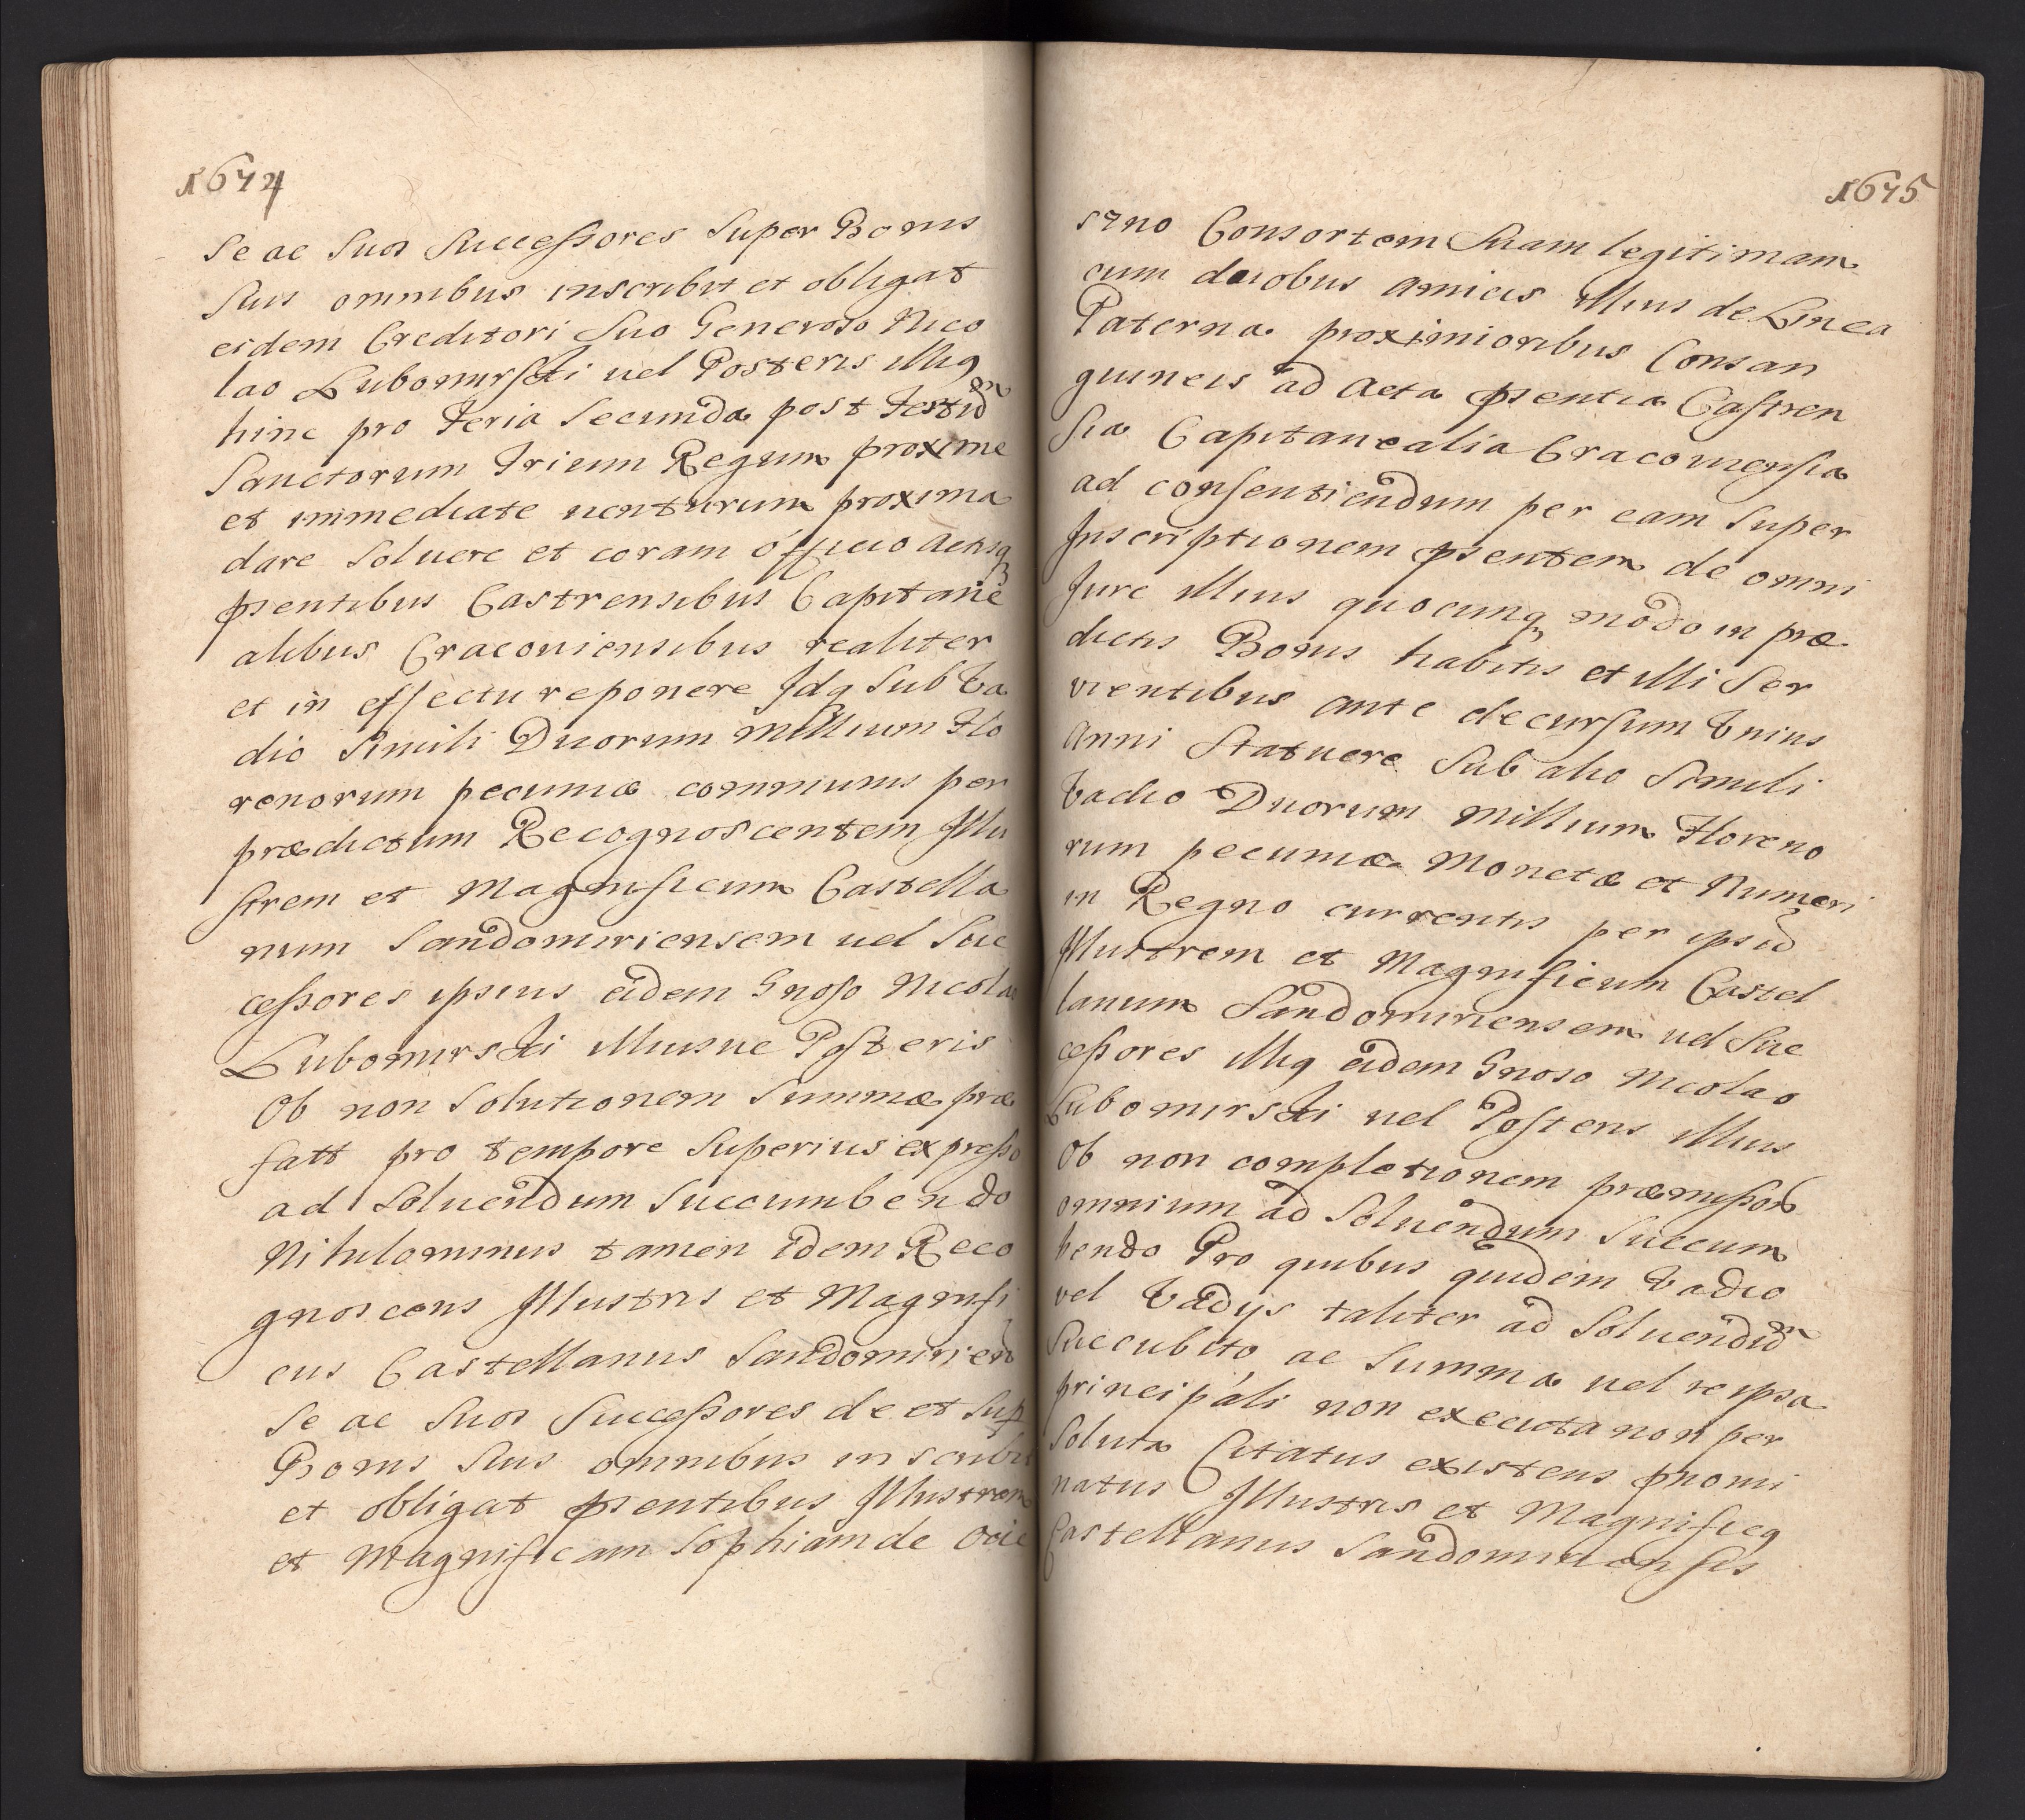 1674
Se ac Suos Successores Super Bonis
Suis omnibus inscribit et obligat
eidem Creditori Suo Generoso Nico
lao Lubomirski uel Posteris illiq
hinc pro Feria Secunda post Festu
Sanctorum Trium Regum proxime
et immediate uenturum proxima
dare Soluere et coram officio Actisq
psentibus Castrensibus Capitane
alibus Cracouiensibus realiter
et in effectu reponere Idq Sub Va
dio Simili Duorum Millium Flo
renorum pecuniæ communis per
prædictum Recognoscentem Illu
strem et Magnificum Castella
num Sandomiriensem uel Suc
cessores ipsius eidem Gnoso Nicolao
Lubomirski illiusue Posteris
Ob non Solutionem Summæ præ
fatt pro tempore Superius expresso
ad Soluendum Succumbendo
Nihilominus tamen idem Reco
gnoscens Illustris et Magnifi
cus Castellanus Sandomirien
Se ac Suos Successores de et Sup
Bonis Suis omnibus inscribit
et obligat psentibus Illustrem
et Magnificam Sophiam de Ocie
1675
szno Consortem Suam legitimam
cum duobus amicis illius de Linea
Paterna proximioribus Consan
guineis ad Acta psentia Castren
sia Capitanealia Cracouiensia
ad consentiendum per eam Super
Inscriptionem psentem de omni
Jure illius quocunq modo in præ
dictis Bonis habitis et illi Ser
vientibus ante decursum Vnius
Anni Statuere Sub alio Simili
Vadio Duorum Millium Floreno
rum pecuniæ Monetæ et Numeri
in Regno currentis per ipsu
Illustrem et Magnificum Castel
lanum Sandomiriensem uel Suc
cessores illiq eidem Gnoso Nicolao
Lubomirski uel Posteris illius
Ob non completionem præmissor
omnium ad Soluendum Succum
bendo Pro quibus quidem Vadio
vel Vadijs taliter ad Soluendu
Succubito ac Summa uel re ipsa
principali non executa non per
Soluta Citatus existens pnomi
natus Illustris et Magnificq
Castellanus Sandomiriensis